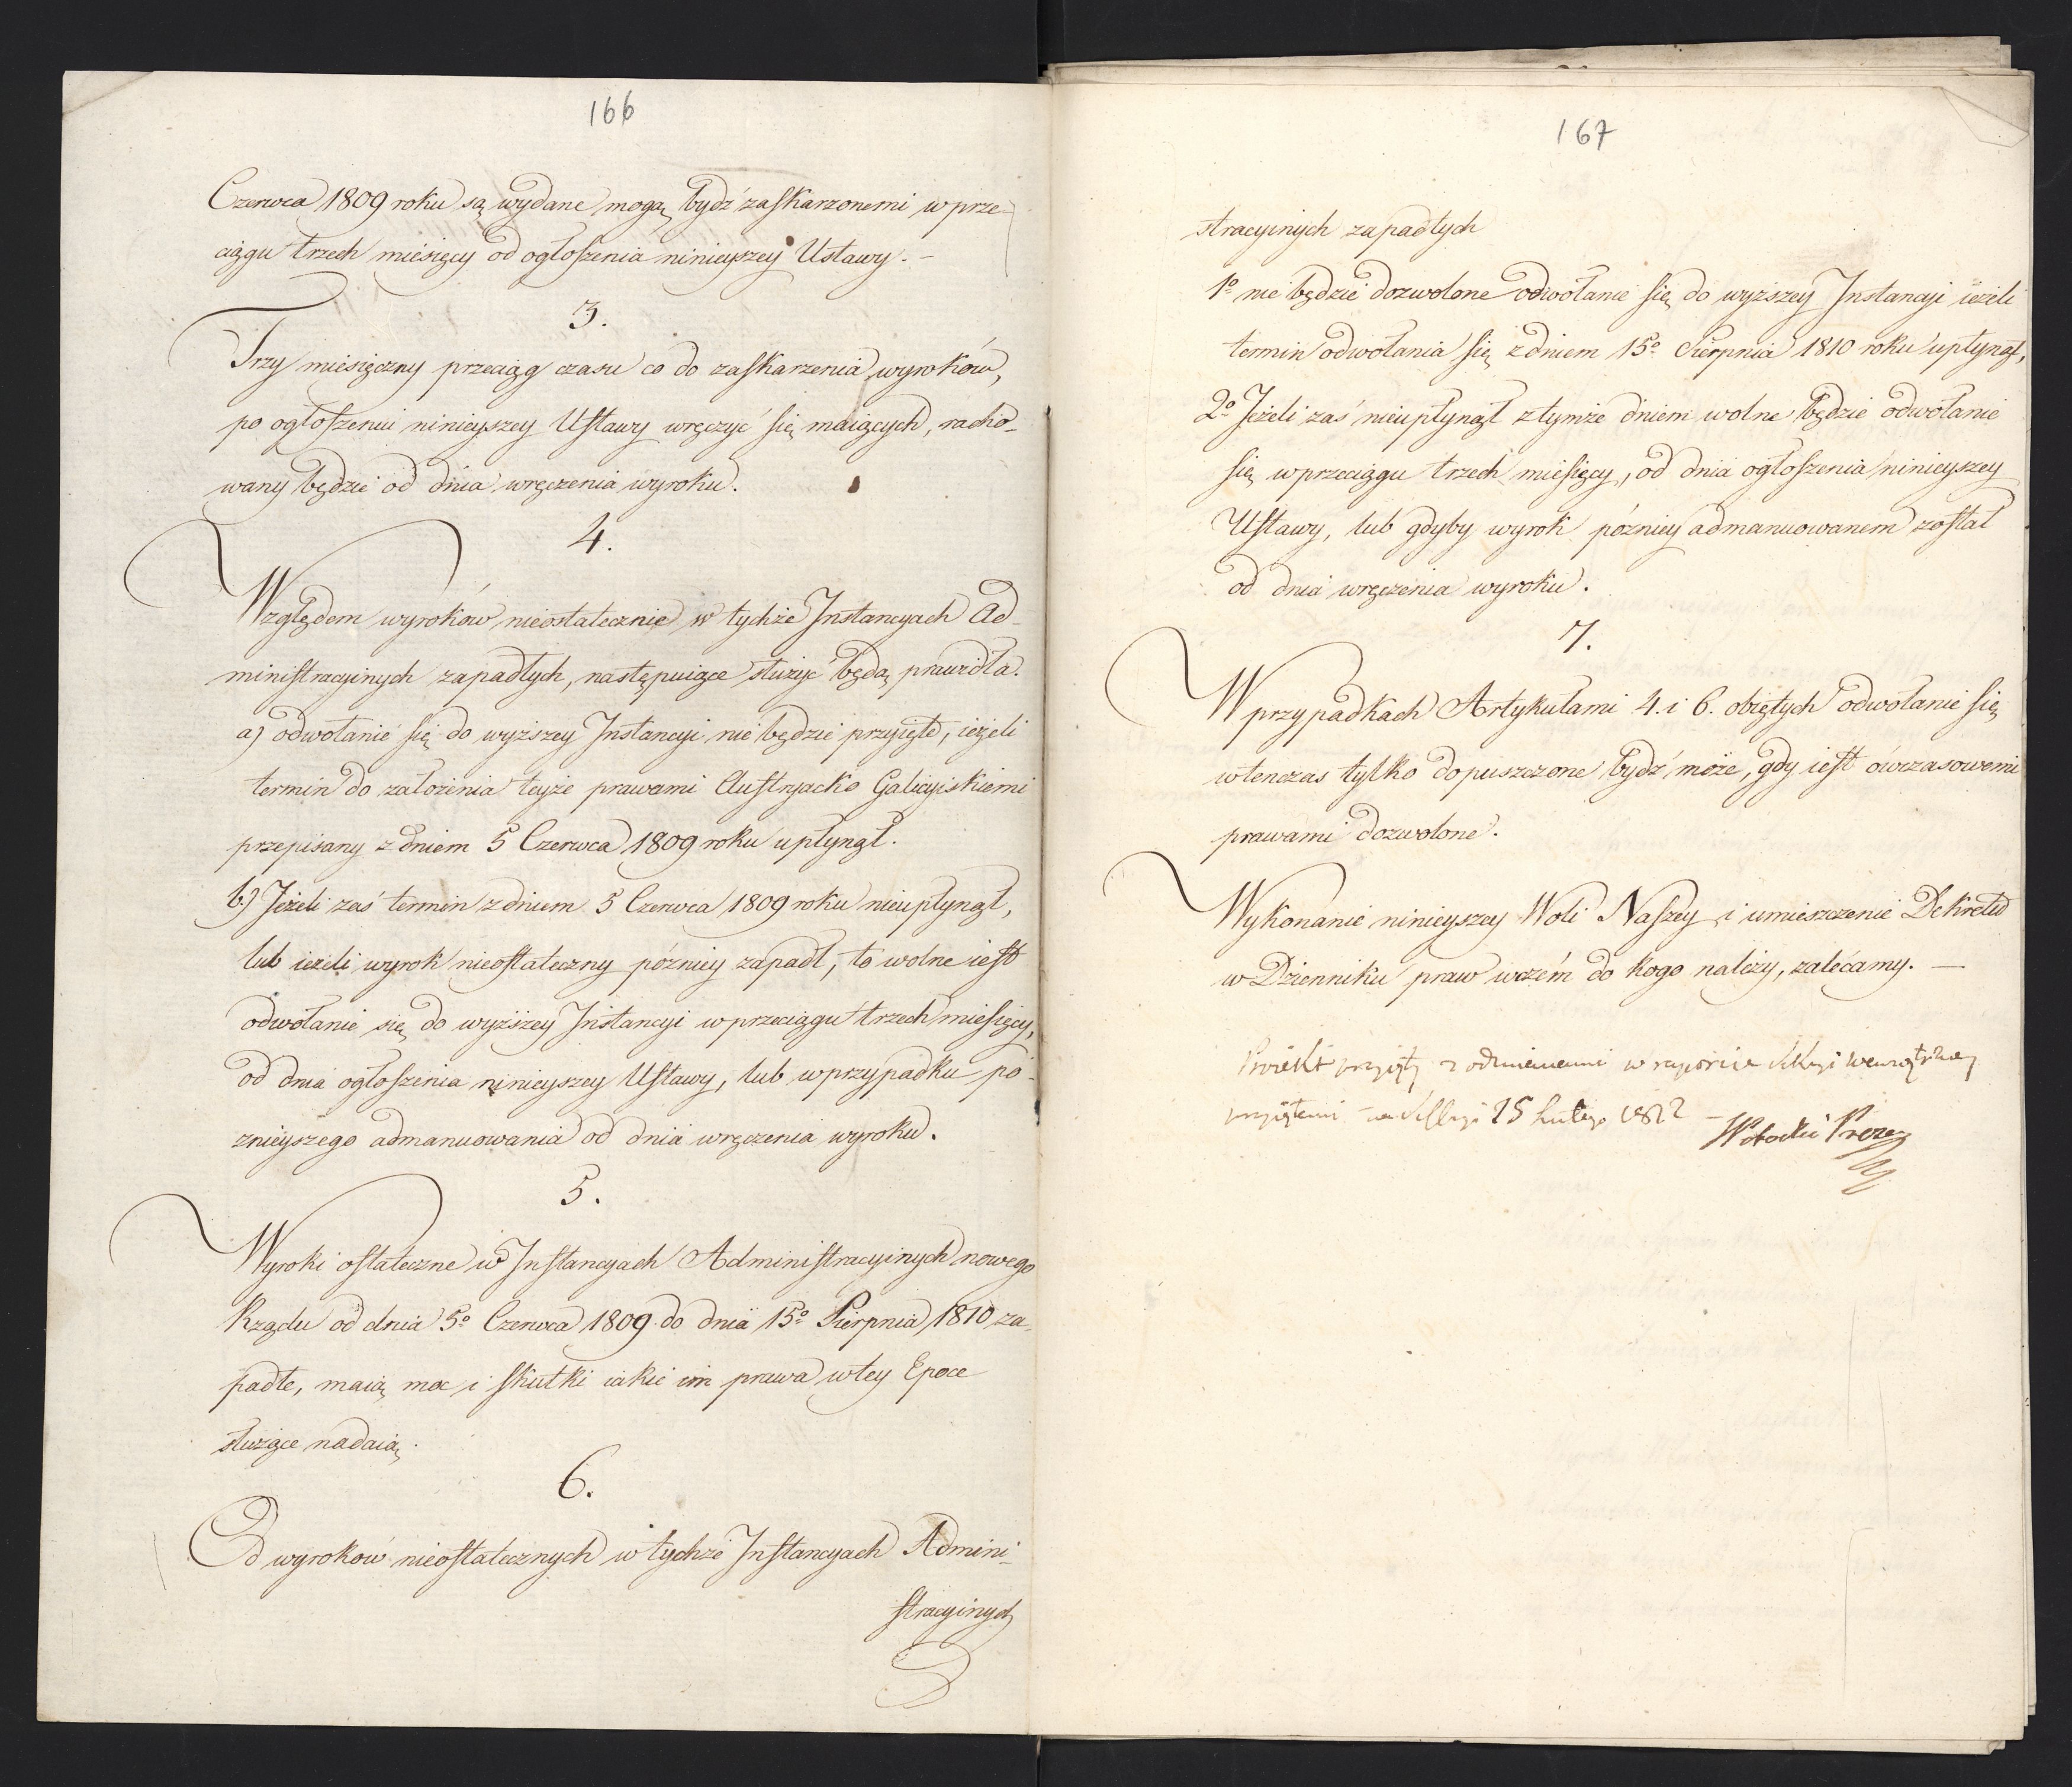 166
Czerwca 1809 roku są wydane mogą bydź zaskarzonemi w prze-
ciągu trzech miesięcy od ogłoszenia ninieyszey Ustawy. -
3.
Trzy miesięczny przeciąg czasu co do zaskarzenia wyroków,
po ogłoszeniu ninieyszey Ustawy wręczyć się maiących, racho-
wany będzie od dnia wręczenia wyroku.
4.
Względem wyroków nieostatecznie w tychże Instancyach Ad-
ministracyinych zapadłych, następuiące służyć będą prawidła.
a) odwołanie się do wyższey Instancyi nie będzie przyięte, ieżeli
termin do założenia teyże prawami Austryacko Galicyiskiemi
przepisany z dniem 5 Czerwca 1809 roku upłynął.
b.) Jeżeli zaś termin z dniem 5 Czerwca 1809 roku nieupłynął,
lub ieżeli wyrok nieostateczny pózniey zapadł, to wolne iest
odwołanie się do wyższey Instancyi w przeciągu trzech miesięcy,
od dnia ogłoszenia ninieyszey Ustawy, lub w przypadku pó-
znieyszego admanuowania od dnia wręczenia wyroku.
5.
Wyroki ostateczne w Instancyach Administracyinych nowego
Rządu od dnia 5º Czerwca 1809 do dnia 15º Sierpnia 1810 za-
padłe, maią moc i skutki iakie im prawa w tey Epoce
służące nadaią.
6.
Od wyroków nieostatecznych w tychże Instancyach Admini-
stracyinych
167
stracyinych zapadłych
1º nie będzie dozwolone odwołanie się do wyższey Instancyi ieżeli
termin odwołania się z dniem 15º Sierpnia 1810 roku upłynął,
2º Jeżeli zaś nieupłynął z tymże dniem wolne będzie odwołanie
się w przeciągu trzech miesięcy, od dnia ogłoszenia ninieyszey
Ustawy, lub gdyby wyrok pózniey admanuowanem został
od dnia wręczenia wyroku.
7.
W przypadkach Artykułami 4. i 6. obiętych odwołanie się
wtenczas tylko dopuszczone bydź może, gdy iest ówczasowemi
prawami dozwolone.
Wykonanie ninieyszey Woli Naszey i umieszczenie Dekretu
w Dzienniku praw wczém do kogo należy, zalécamy. —
Proiekt przyięty z odmianami w raporcie Sekcyi wewnętrzney
przyiętemi na Sessyi 15 Lutego 1812 —
Potocki Prezes